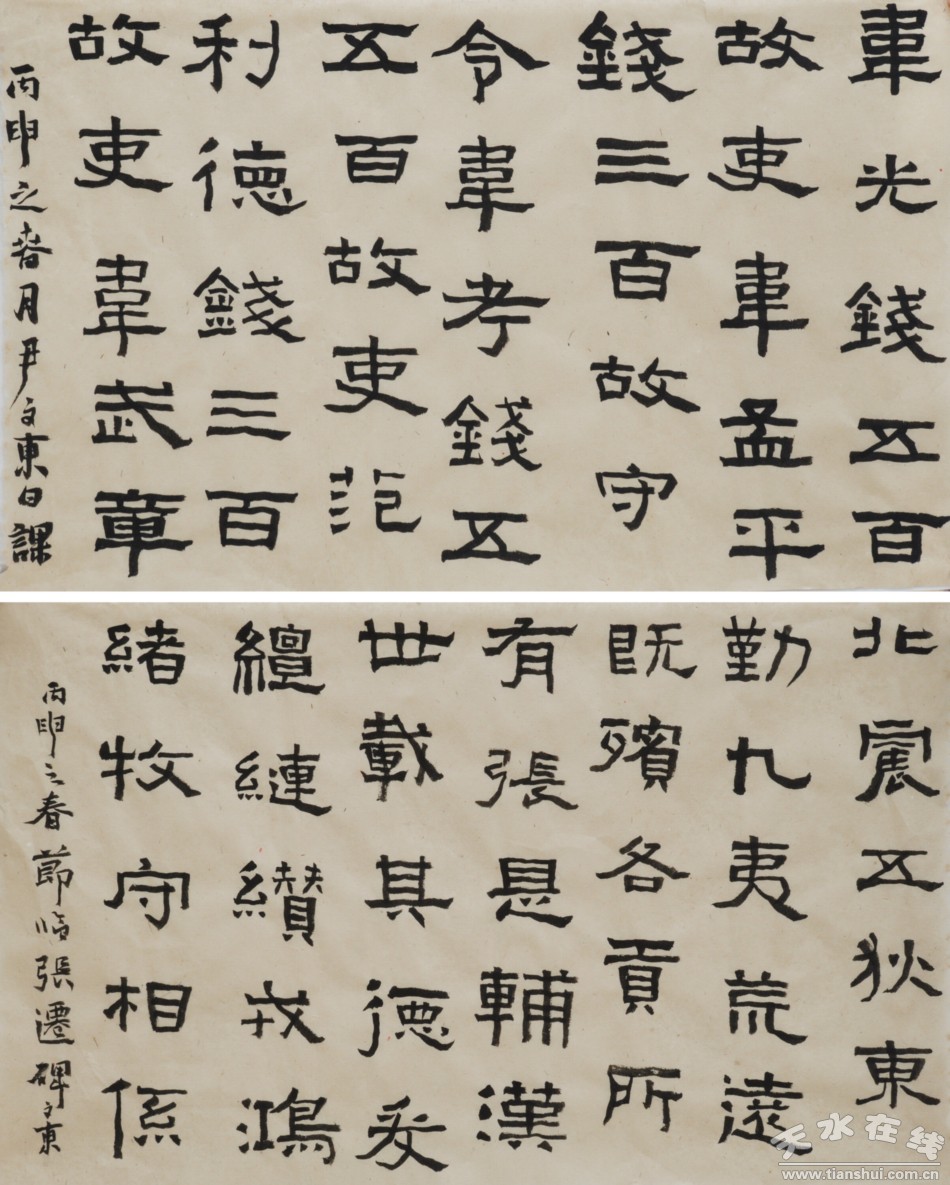 韋光錢五百
故吏韋孟平
錢三百故守
令韋考錢五
五百故吏范
利德錢三百
故吏韋武章
丙申之春月尹文東日課
北震五狄東
勤九夷荒遠
既殯各貢所
有張是輔漢
世載其德爰
纏縺纘戎鴻
緒牧守相係
丙申之春節臨張遷碑文東
天水在线
www.tianshui.com.cn